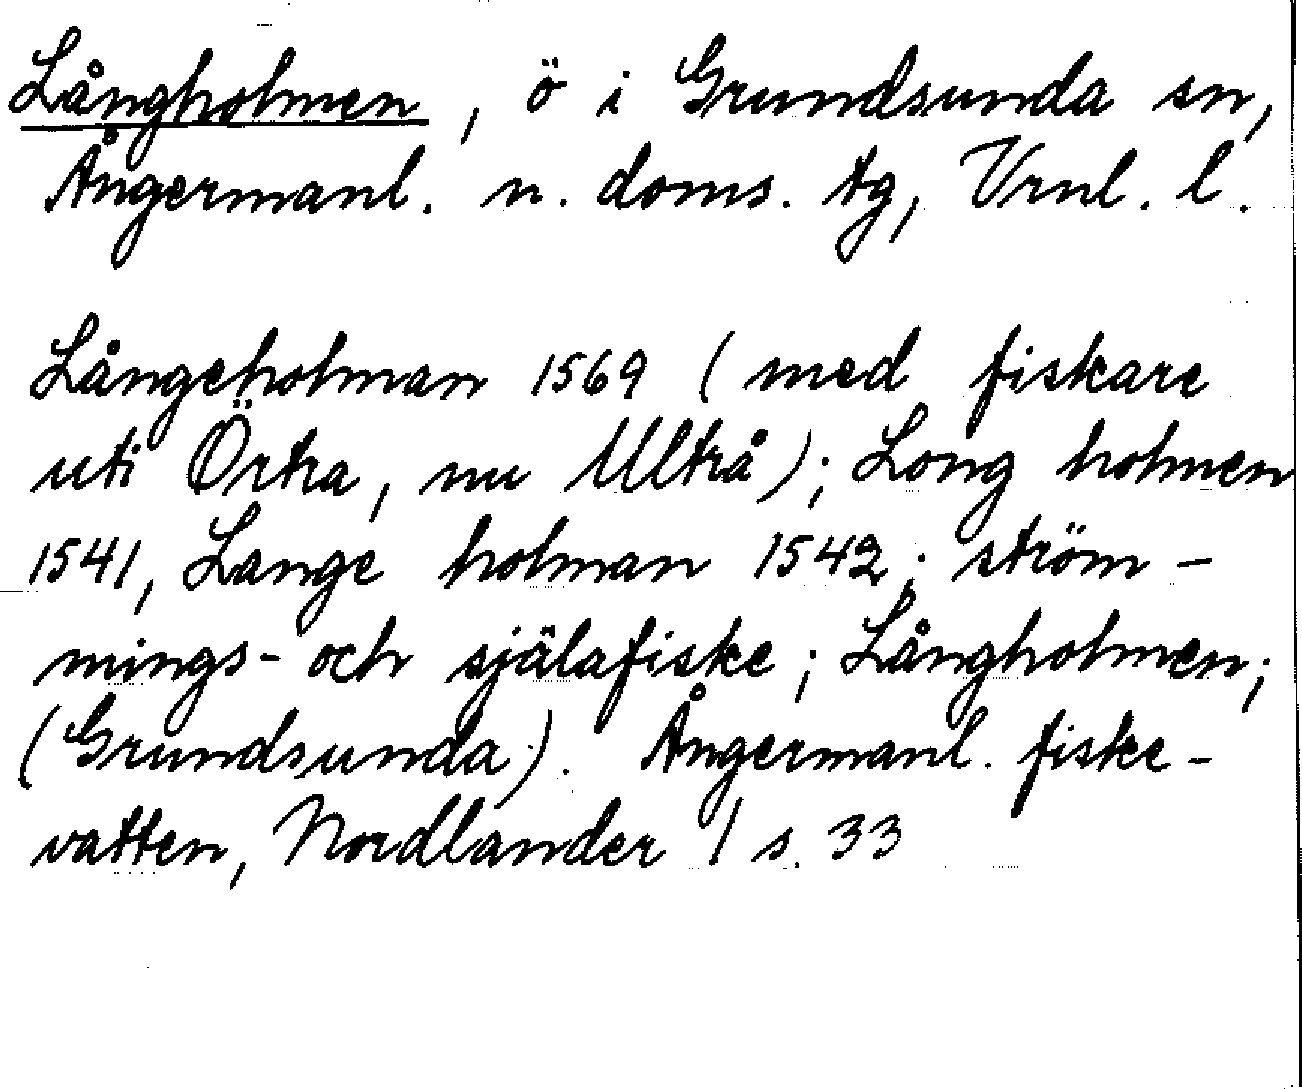 Långholmen, ö i Grundsunda sn,
Ångermanl. n. doms. tg, Vrnl. l.
Långeholman 1569 (med fiskare
uti Örtra, nu Ultrå); Long holmen
1541, Lange holman 1542; ström-
mings- och själafiske; Långholmen;
(Grundsunda). Ångermanl. fiske-
vatten, Nordlander 1 s. 33